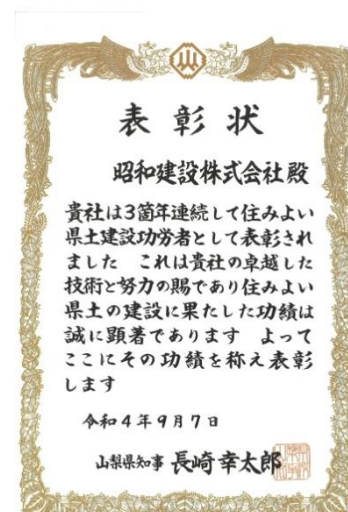 表彰状
昭和建設株式会社殿
貴社は3箇年連続して住みよい
県土建設功労者として表彰され
ました これは貴社の卓越した
技術と努力の賜であり住みよい
県土の建設に果たした功績は
誠に顕著であります よって
ここにその功績を称え表彰
します
令和4年9月7日
山梨県知事 長崎幸太郎